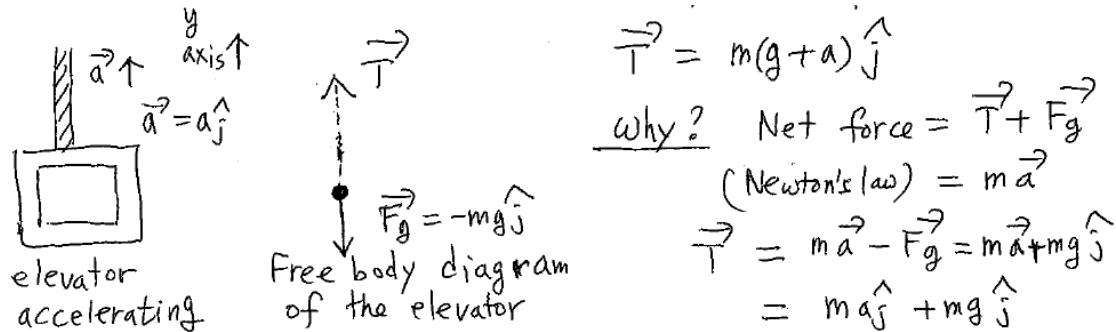 y
axis↑
a⃗ ↑
a⃗ = aĵ
elevator
accelerating
T⃗
F⃗g = -mgĵ
Free body diagram
of the elevator
T⃗ = m(g+a) ĵ
why? Net force = T⃗ + F⃗g
(Newton's law) = m a⃗
T⃗ = m a⃗ - F⃗g = m a⃗ + mg ĵ
= m aĵ + mg ĵ